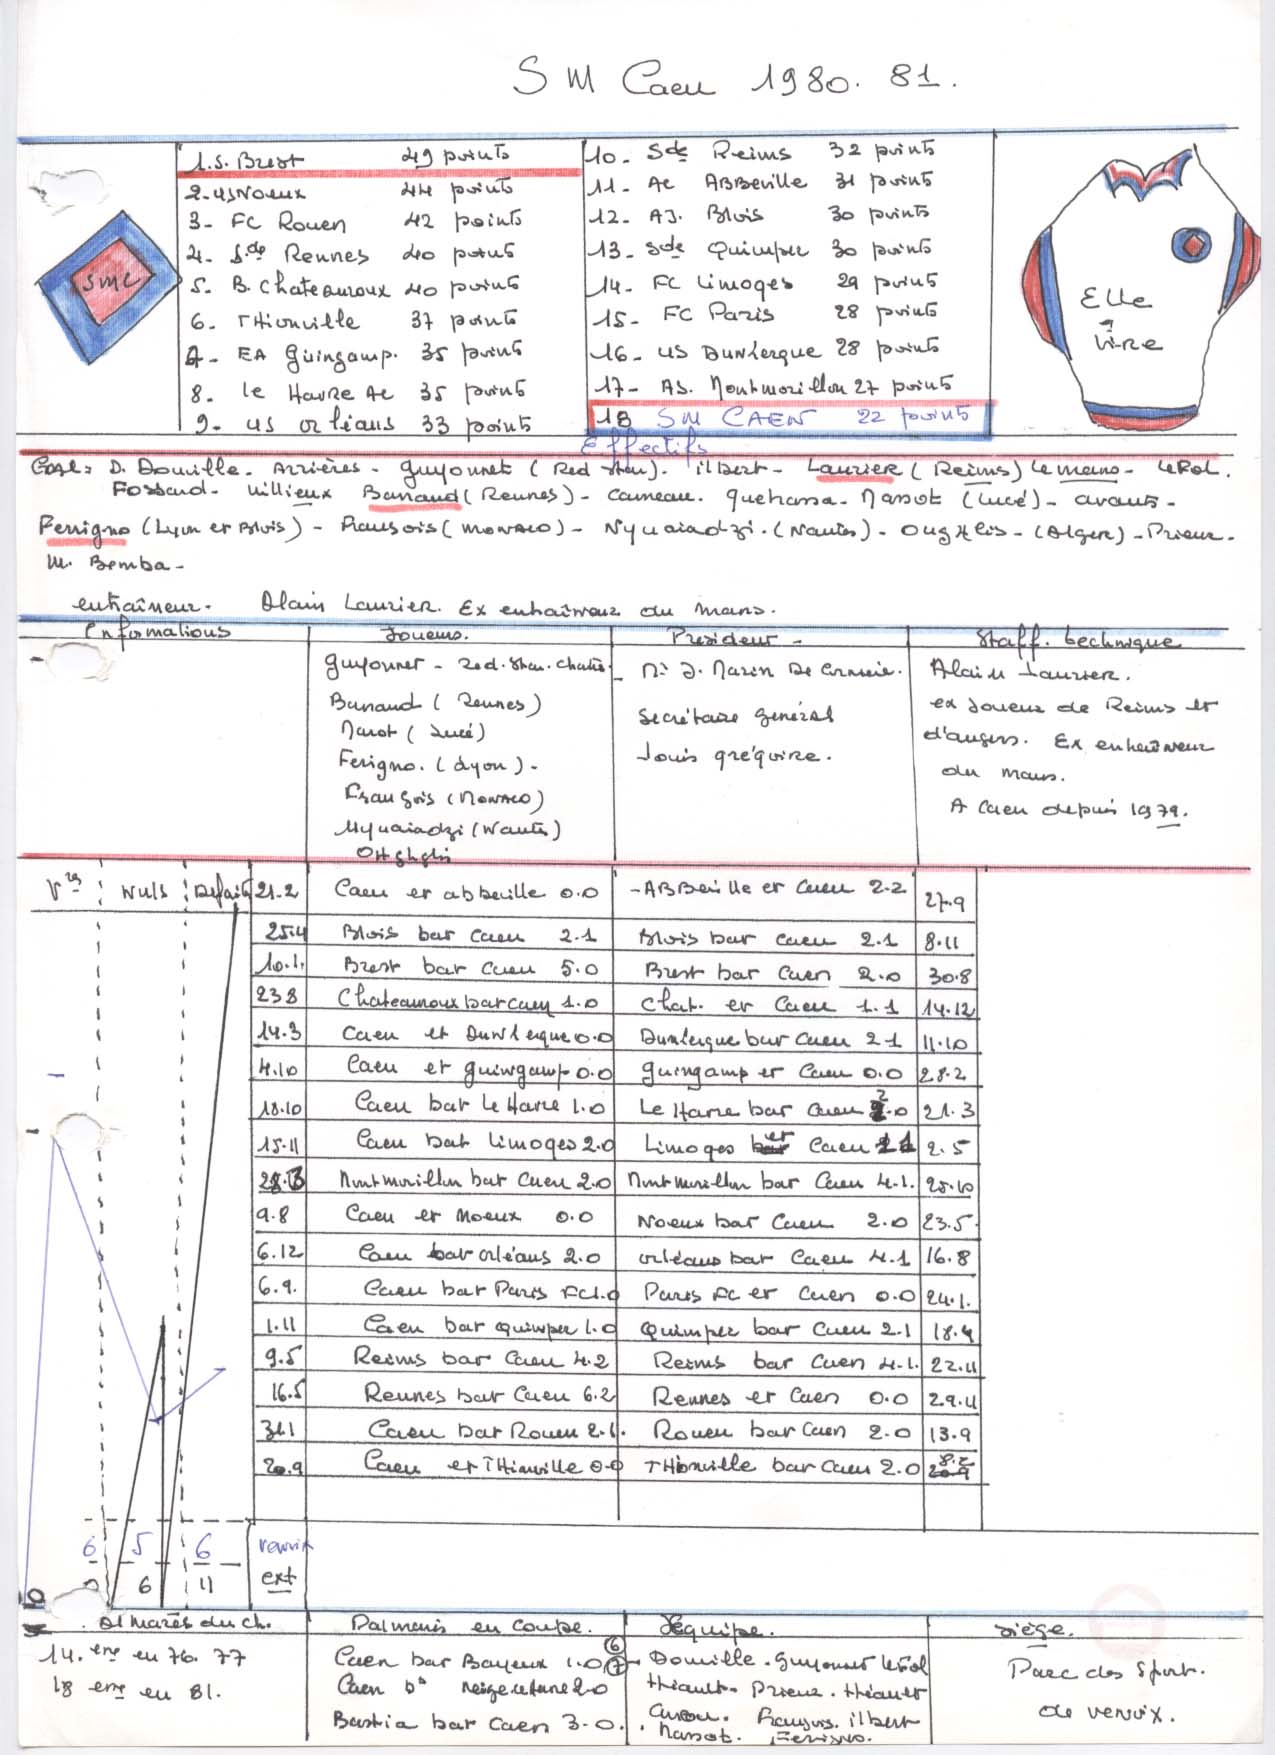 SM Caen 1980. 81.
1. S. Brest 49 points
2. US Noeux 44 points
3 - FC Rouen 42 points
4 - Sde Rennes 40 points
5 - B. Chateauroux 40 points
6 - THionville 37 points
7 - EA Guingamp. 35 points
8 - le Havre Ac 35 points
9 - US orléans 33 points
10 - Sde Reims 32 points
11 - Ac ABBeville 31 points
12 - AJ. Blois 30 points
13 - Sde Quimper 30 points
14 - FC Limoges 29 points
15 - FC Paris 28 points
16 - US Dunkerque 28 points
17 - AS. Montmorillon 27 points
18 SM CAEN 22 points
SMC
Elle
&
Vire
Effectifs
Goal: D. Douville. Arrières - Guyonnet (Red Star). ilbert - Laurier (Reims) le mans - leRol.
Fossard - Banaud (Rennes) - Camean. Quehassa - Nassot (Lucé) - avants -
Ferrigno (Lyon et Blois) - François (Monaco) - (Nantes) - - (Alger) - Prieur -
M. Bemba -
entraîneur - Alain Laurier. Ex entraîneur du mans.
Informations Joueurs. President - Staff. technique
Guyonnet - Red. Star.
Banaud (Rennes)
(Lucé)
Ferigno. (Lyon). -
François (Monaco)
(Nantes)
Mr J. Marin
Secrétaire Genéral
Louis gréqoire.
Alain Laurier.
ex Joueur de Reims et
d'angers. Ex entraîneur
du mans.
A Caen depuis 1979.
Nuls Defaites
21.2 Caen et abbeville 0.0 - ABBeville et Caen 2.2 27.9
25.4 Blois bat Caen 2.1 Blois bat Caen 2.1 8.11
10.1. Brest bat Caen 5.0 Brest bat Caen 2.0 30.8
23 8 Chateauroux bat Caen 1.0 Chat. et Caen 1.1 14.12
14.3 Caen et Dunkerque 0.0 Dunkerque bat Caen 2 1 11.10
4.10 Caen et guingamp 0.0 guingamp et Caen 0.0 28.2
18.10 Caen bat Le Havre 1.0 Le Havre bat Caen 2.0 21.3
15.11 Caen bat Limoges 2.0 Limoges et Caen 1 1 2.5
28.3 Montmorillon bat Caen 2.0 Montmorillon bat Caen 4.1. 25.10
9.8 Caen et Noeux 0.0 Noeux bat Caen 2.0 23.5
6.12 Caen bat orléans 2.0 orléans bat Caen 4.1 16.8
6.9. Caen bat Paris FC 1.0 Paris FC et Caen 0.0 24.1.
1.11 Caen bat Quimper 1.0 Quimper bat Caen 2.1 18.4
9.5 Reims bat Caen 4.2 Reims bat Caen 4.1. 22.11
16.5 Rennes bat Caen 6.2 Rennes et Caen 0.0 29.11
31.1 Caen bat Rouen 2.1. Rouen bat Caen 2.0 13.9
20.9 Caen et THionville 0.0 THionville bat Caen 2.0 8.2
6 5 6 venoix
0 6 11 ext
Palmarès du ch. Palmarés en coupe. l'équipe. siège.
14. eme en 76. 77
18 eme en 81.
Caen bat Bayeux 1.0 (6)
Caen 2.0 (7)
Bastia bat Caen 3.0.
Douville - Guyonnet
Thiault. Prieur. Théault
François. ilbert
Nassot. Ferigno.
Parc des Sports.
de venoix.